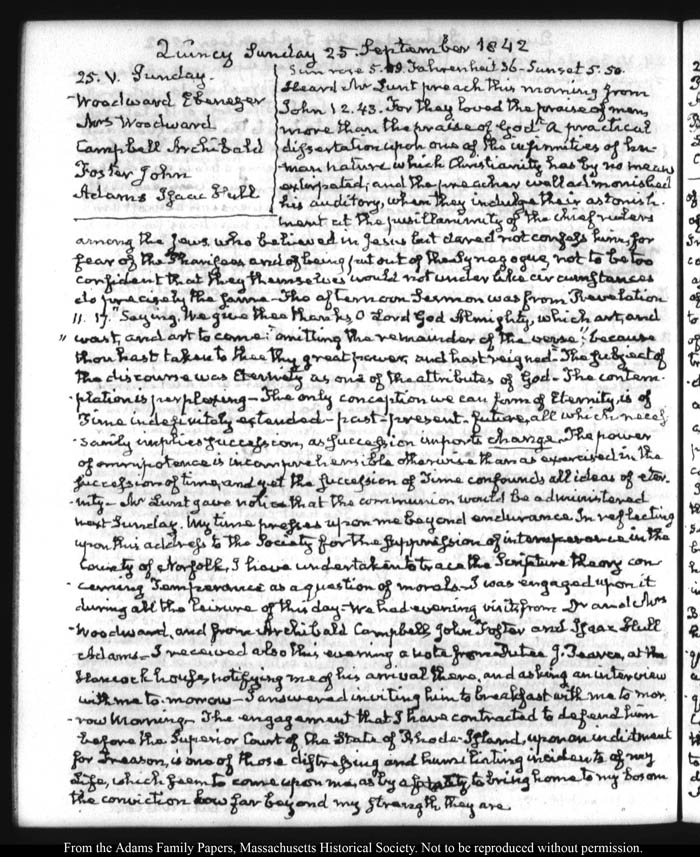 Quincy Sunday 25. September 1842
25. V. Sunday.
Woodward Ebenezer
Mrs Woodward
Campbell Archibald
Foster John
Adams Isaac Hull
Sun rose 5-49. Fahrenheit 36 - Sunset 5.50.
Heard Mr Lunt preach this morning from
John 12.43. For they loved the praise of men,
more than the praise of God. A practical
dissertation upon one of the infirmities of hu-
man nature which Christianity has by no means
extirpated; and the preacher well admonished
his auditory, when they indulge their astonish-
ment at the pusillanimity of the chief rulers
among the Jews, who believed in Jesus but dared not confess him, for
fear of the Pharisees and of being put out of the Synagogue, not to be too
confident that they themselves would not under like circumstances
do precisely the same - The afternoon Sermon was from Revelation
11. 17. "Saying, We give thee thanks O Lord God Almighty, which art, and
" wast, and art to come;" omitting the remainder of the verse; "because
thou hast taken to thee thy great power, and hast reigned - The subject of
the discourse was Eternity as one of the attributes of God - The contem-
-plation is perplexing - The only conception we can form of Eternity, is of
Time indefinitely extended - past - present - future, all which neces-
-sarily implies succession, as succession imports change. The power
of omnipotence is incomprehensible otherwise than as exercised in the
succession of time, and yet the succession of Time confounds all ideas of eter-
-nity - Mr Lunt gave notice that the communion would be administered
next Sunday. My time presses upon me beyond endurance. In reflecting
upon this address to the Society for the suppression of intemperance in the
County of Norfolk, I have undertaken to trace the Scripture theory con-
-cerning Temperance as a question of morals - I was engaged upon it
during all the leisure of this day - We had evening visits from - Dr and Mrs
Woodward, and from Archibald Campbell, John Foster and Isaac Hull
Adams - I received also this evening a note from Dutee J. Pearce, at the
Hancock house, notifying me of his arrival there, and asking an interview
with me to-morrow - I answered inviting him to breakfast with me to mor-
-row Morning - The engagement that I have contracted to defend him
before the Superior Court of the State of Rhode-Island, upon an indictment
for Treason, is one of those distressing and humiliating incidents of my
Life, which seem to come upon me, as by a fatality to bring home to my bosom
the conviction how far beyond my strength they are
From the Adams Family Papers, Massachusetts Historical Society. Not to be reproduced without permission.